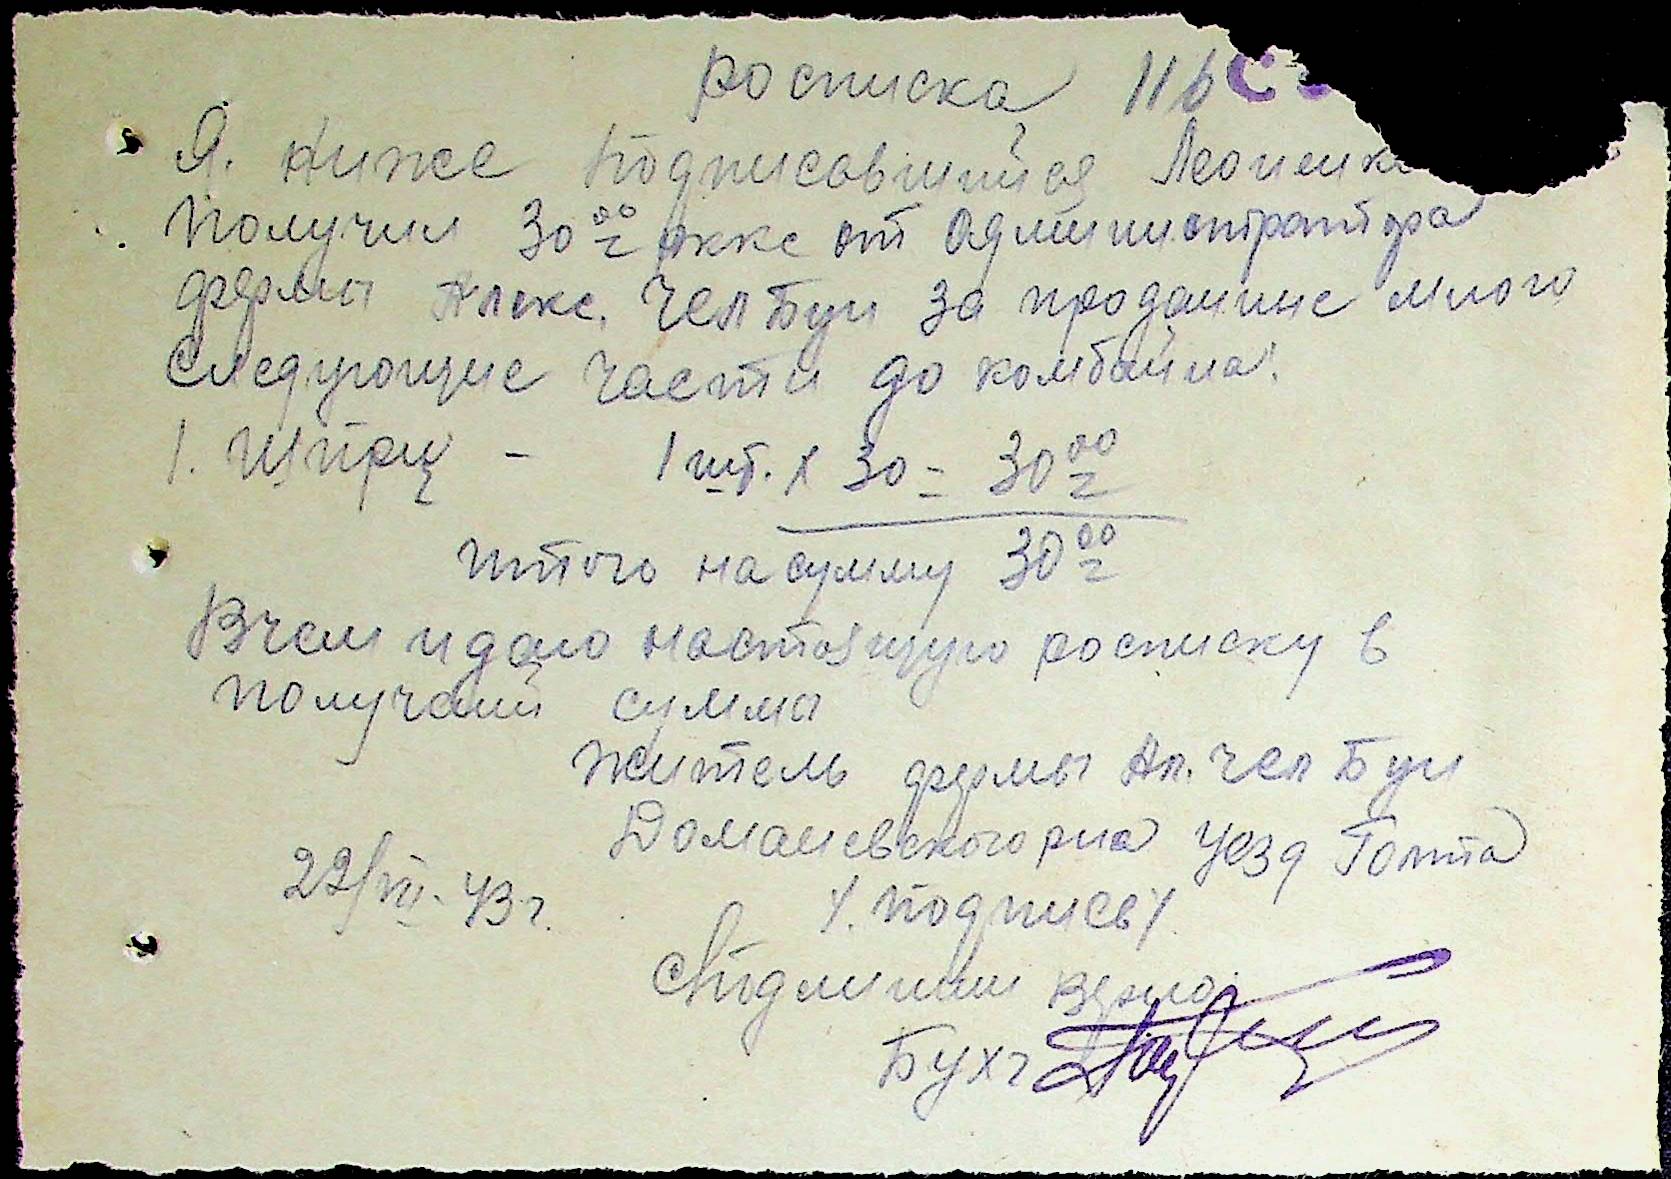 росписка 116
Я. ниже подписавшийся Леоненк
получил 30 00 окке от администратора
фермы Алекс. Челбуи за проданние мною
следующие части до комбайна:
1. Шприц - 1 шт. х 30 = 30 00
итого на сумму 30 00
В чем и даю настоящую росписку в
получании суммы
житель фермы Ал. челбуи
Доманевского р-на уезд Голта
22/VII. 43 г.
/. подпись/
С подлинным верно:
Бухг